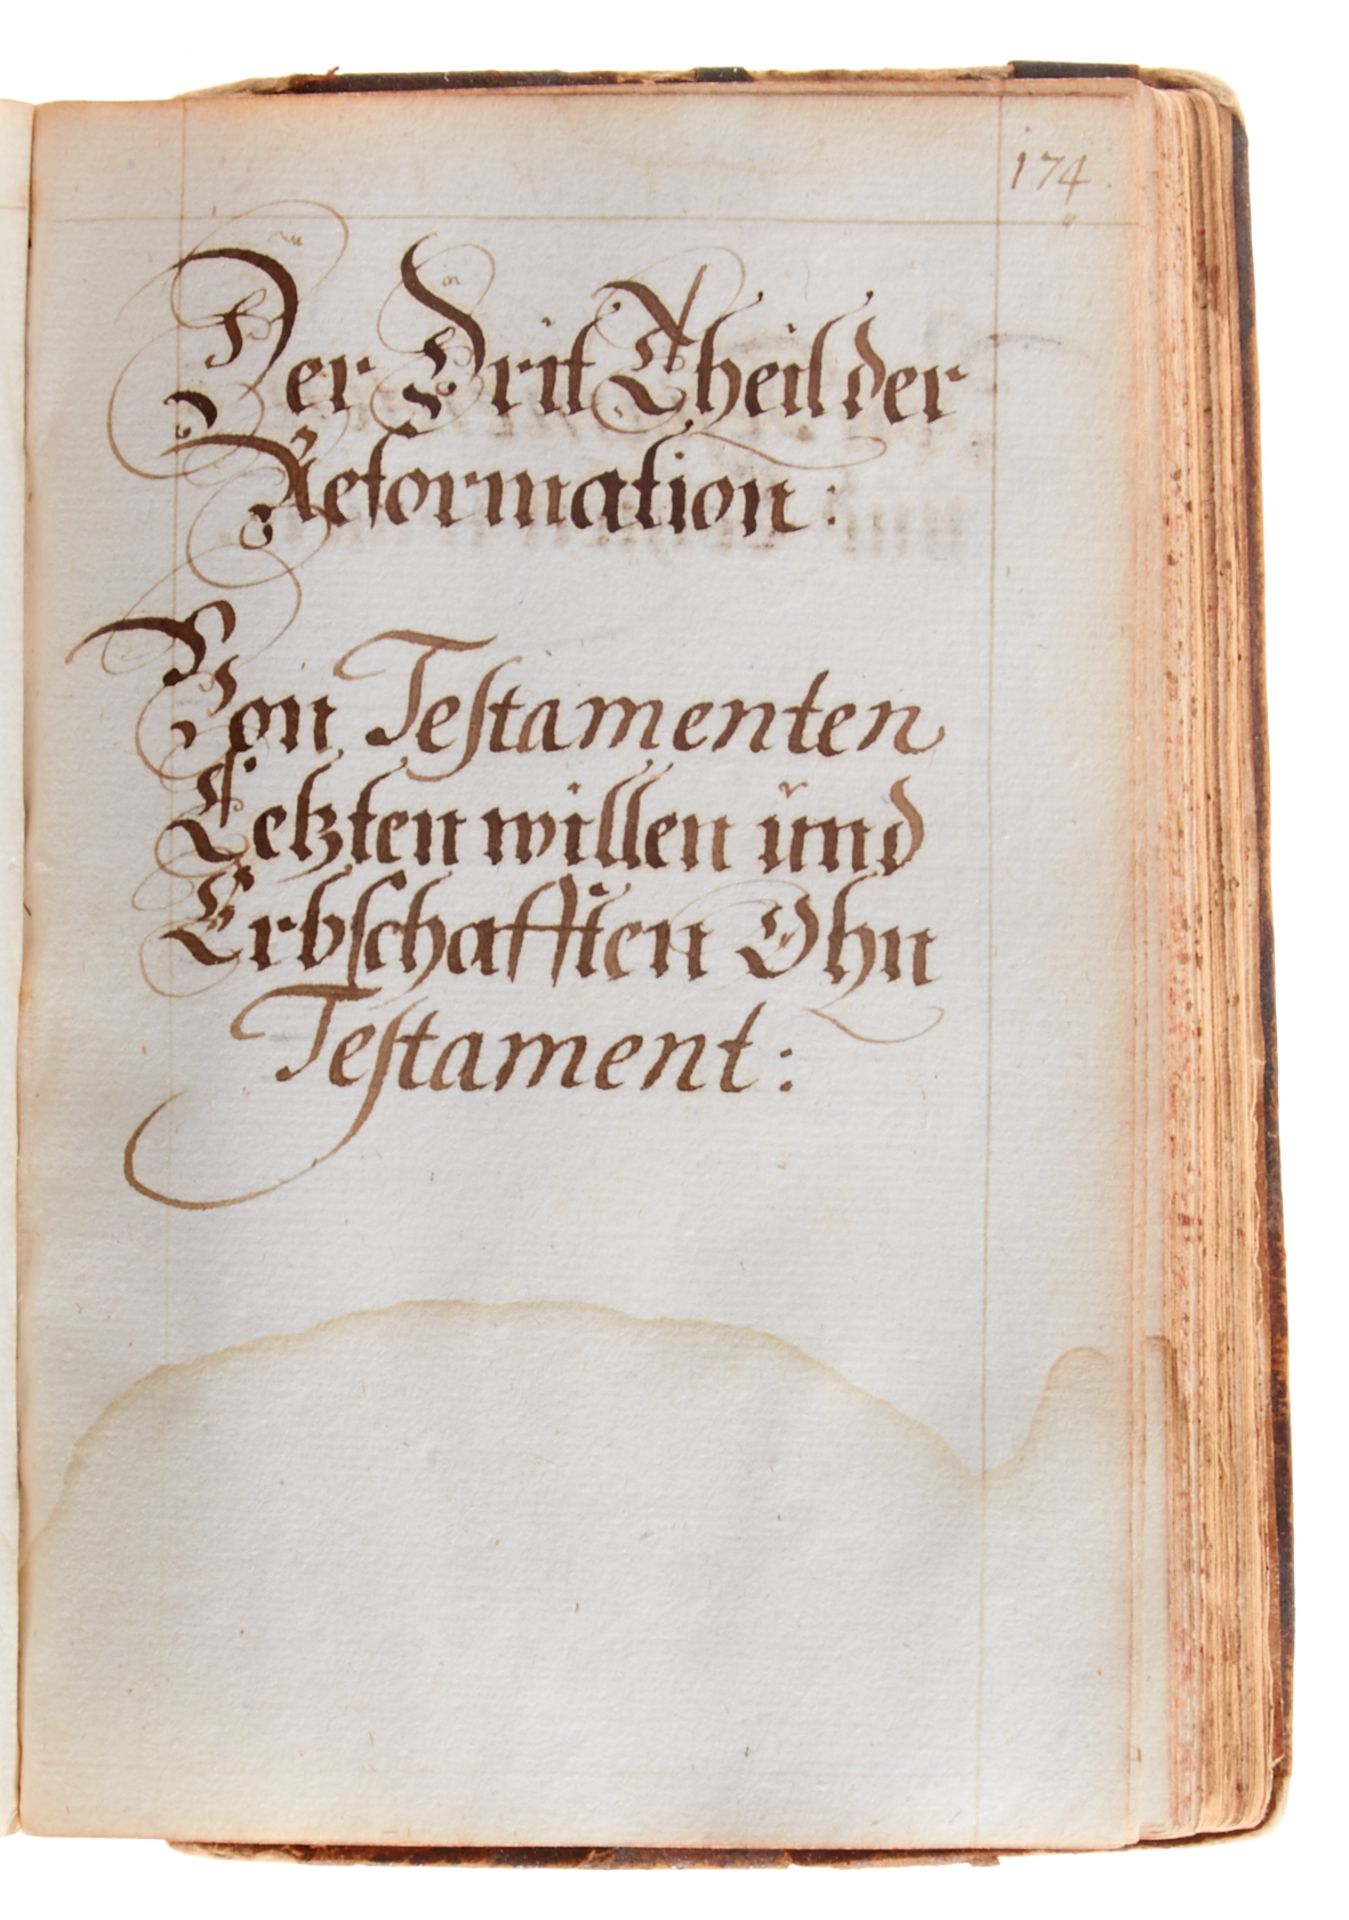 174.
Der Drit Theil der
Reformation:
Von Testamenten
Letzten willen und
Erbschafften Ohn
Testament: